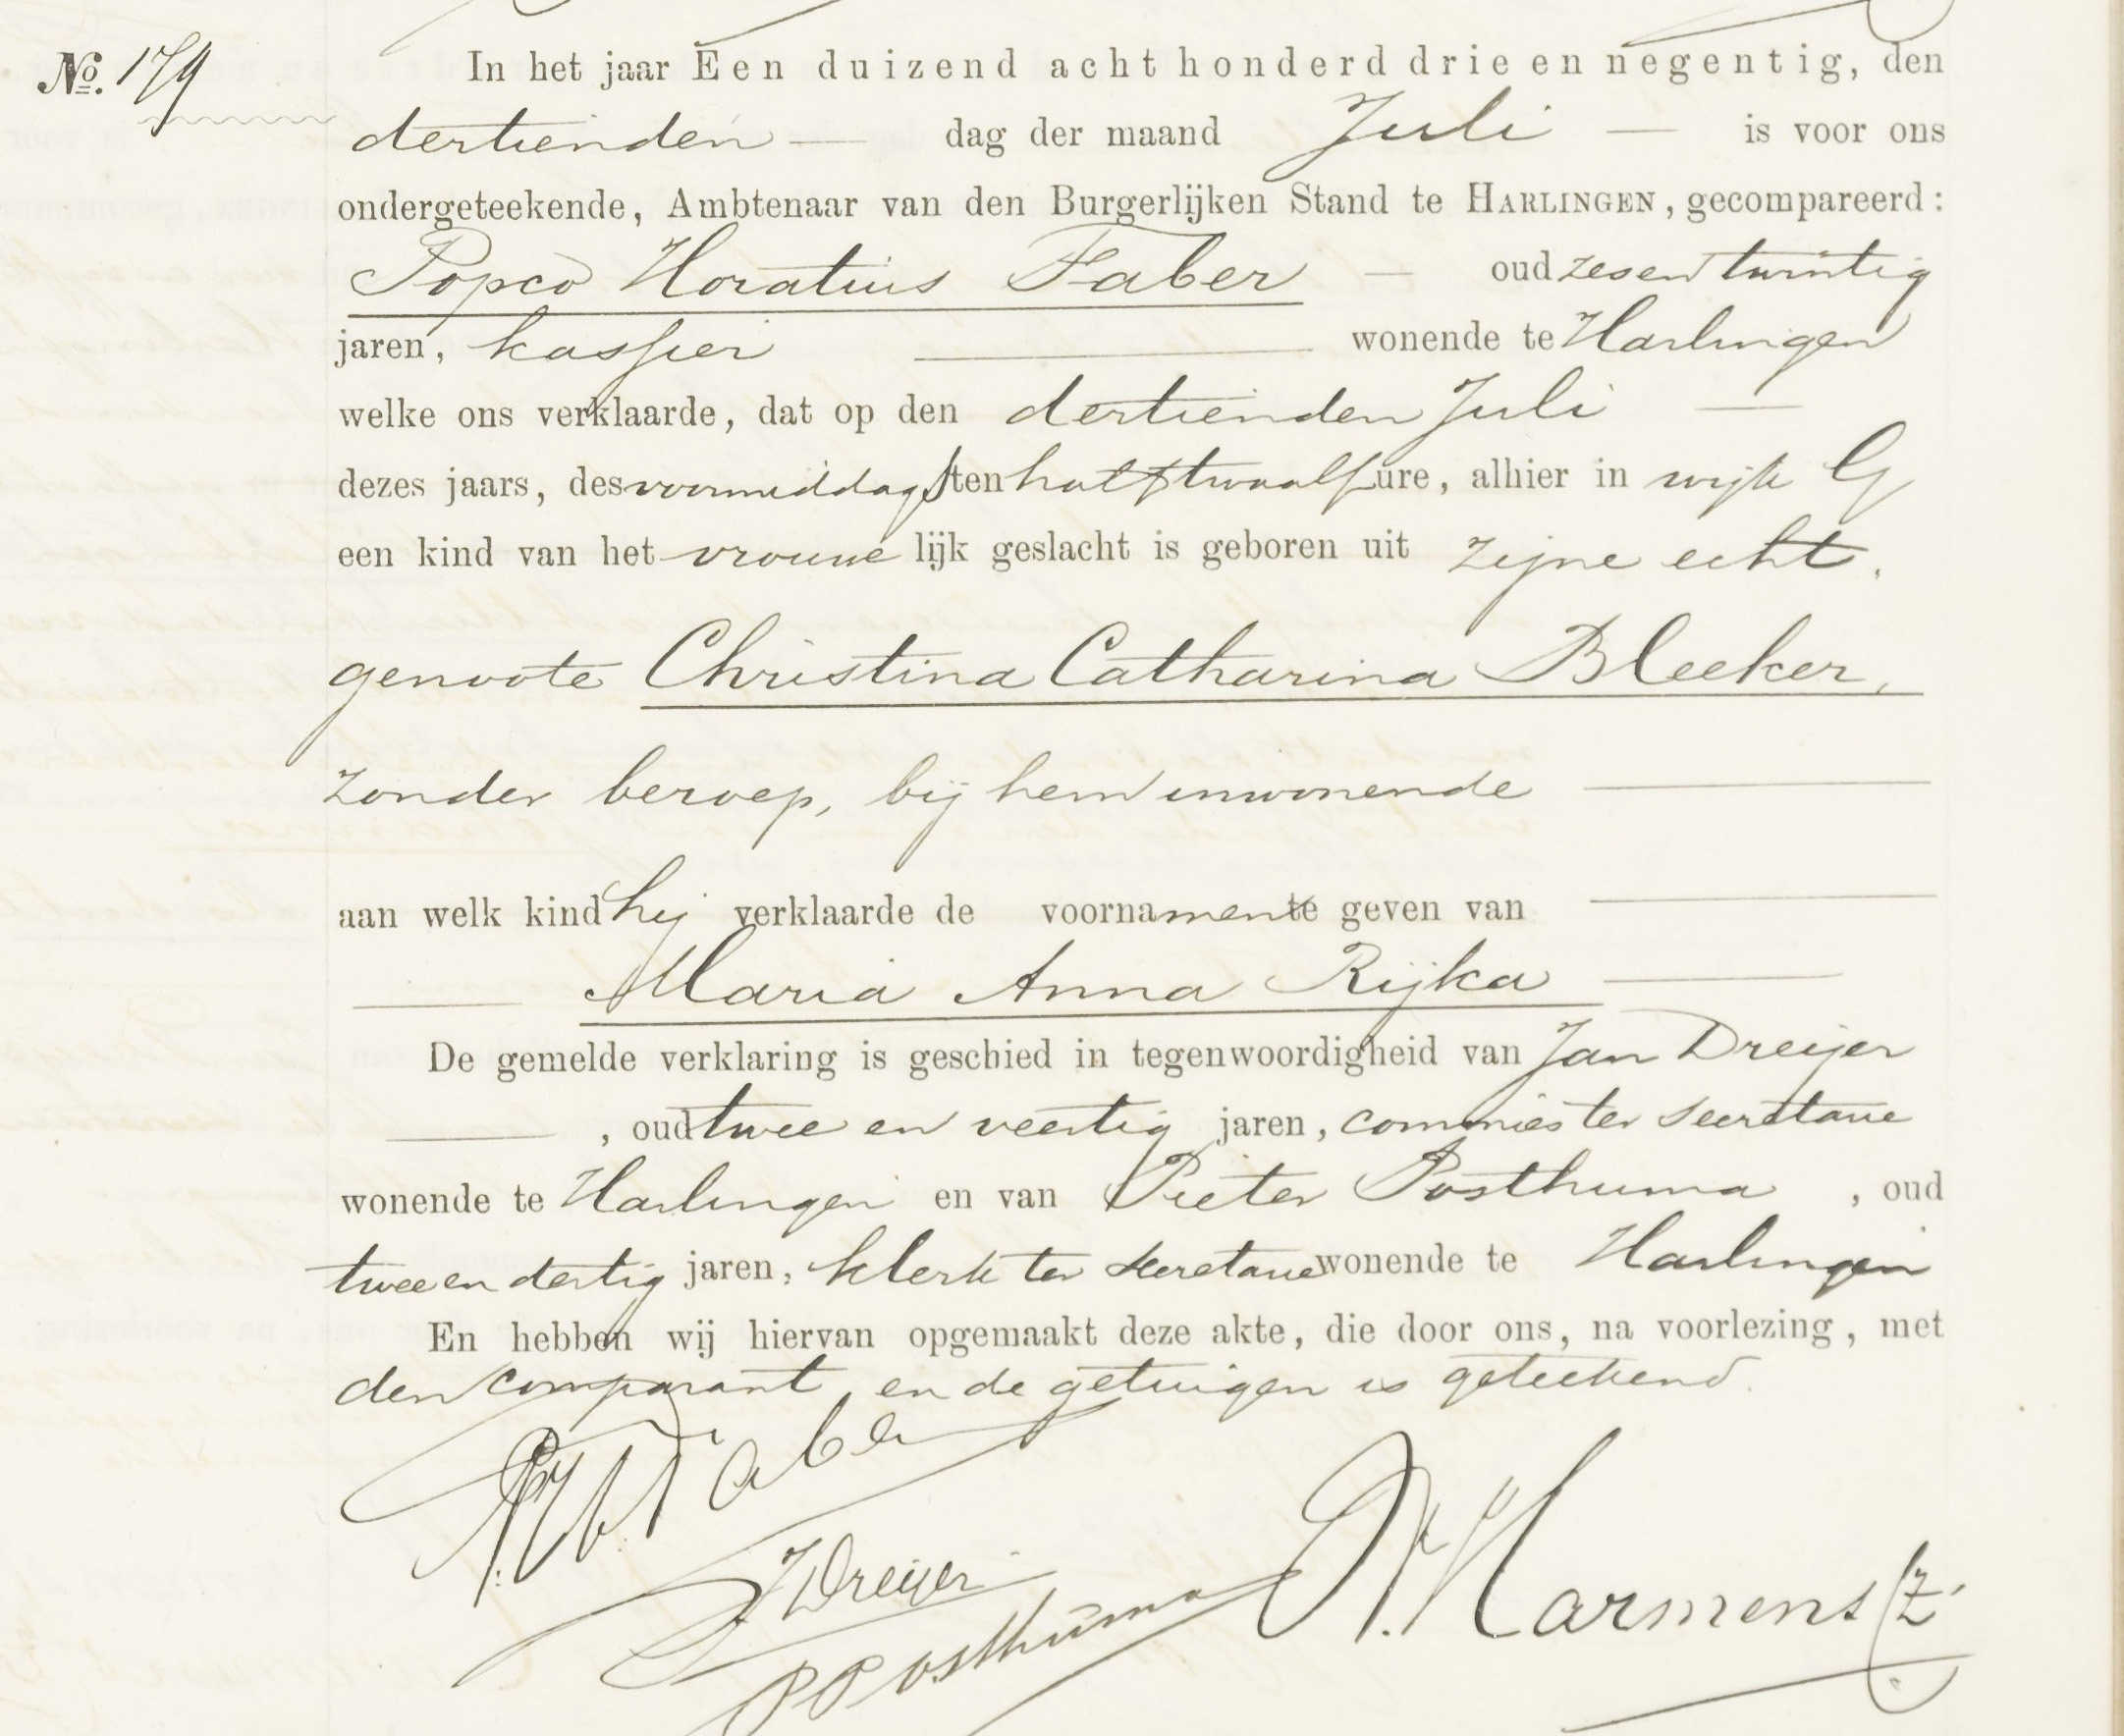 No. 179
In het jaar Een duizend acht honderd drie en negentig, den
dertienden — dag der maand Juli — is voor ons
ondergeteekende, Ambtenaar van den Burgerlijken Stand te HARLINGEN, gecompareerd:
Popco Horatius Faber — oud zesentwintig
jaren, kassier — wonende te Harlingen
welke ons verklaarde, dat op den dertienden Juli —
dezes jaars, des voormiddags ten half twaalf ure, alhier in wijk G
een kind van het vrouwelijk geslacht is geboren uit zijne echt,
genoote Christina Catharina Bleeker,
zonder beroep, bij hem inwonende —
aan welk kind hij verklaarde de voornamen te geven van —
— Maria Anna Rijka —
De gemelde verklaring is geschied in tegenwoordigheid van Jan Dreijer
—, oud twee en veertig jaren, commies ter secretarie
wonende te Harlingen en van Pieter Posthuma, oud
twee en dertig jaren, klerk ter secretarie wonende te Harlingen
En hebben wij hiervan opgemaakt deze akte, die door ons, na voorlezing, met
den comparant, en de getuigen is geteekend.
P.H. Faber
J Dreijer
P Posthuma
Harmens Lz.